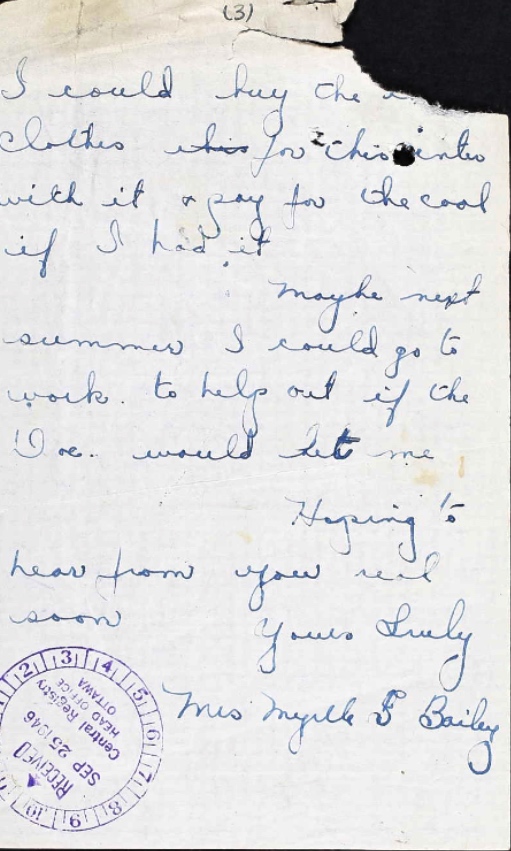 (3)
I could buy the
clothes this for this winter
with it & pay for the coal
if I had it
Maybe next
summer I could go to
work. to help out if the
Doc. would let me
Hoping to
hear from you real
soon Yours Truly
Mrs Myrtle F Bailey
RECEIVED
SEP 25 1946
Central Registry
HEAD OFFICE
OTTAWA
2 3 4 5 6 7 8 9 10